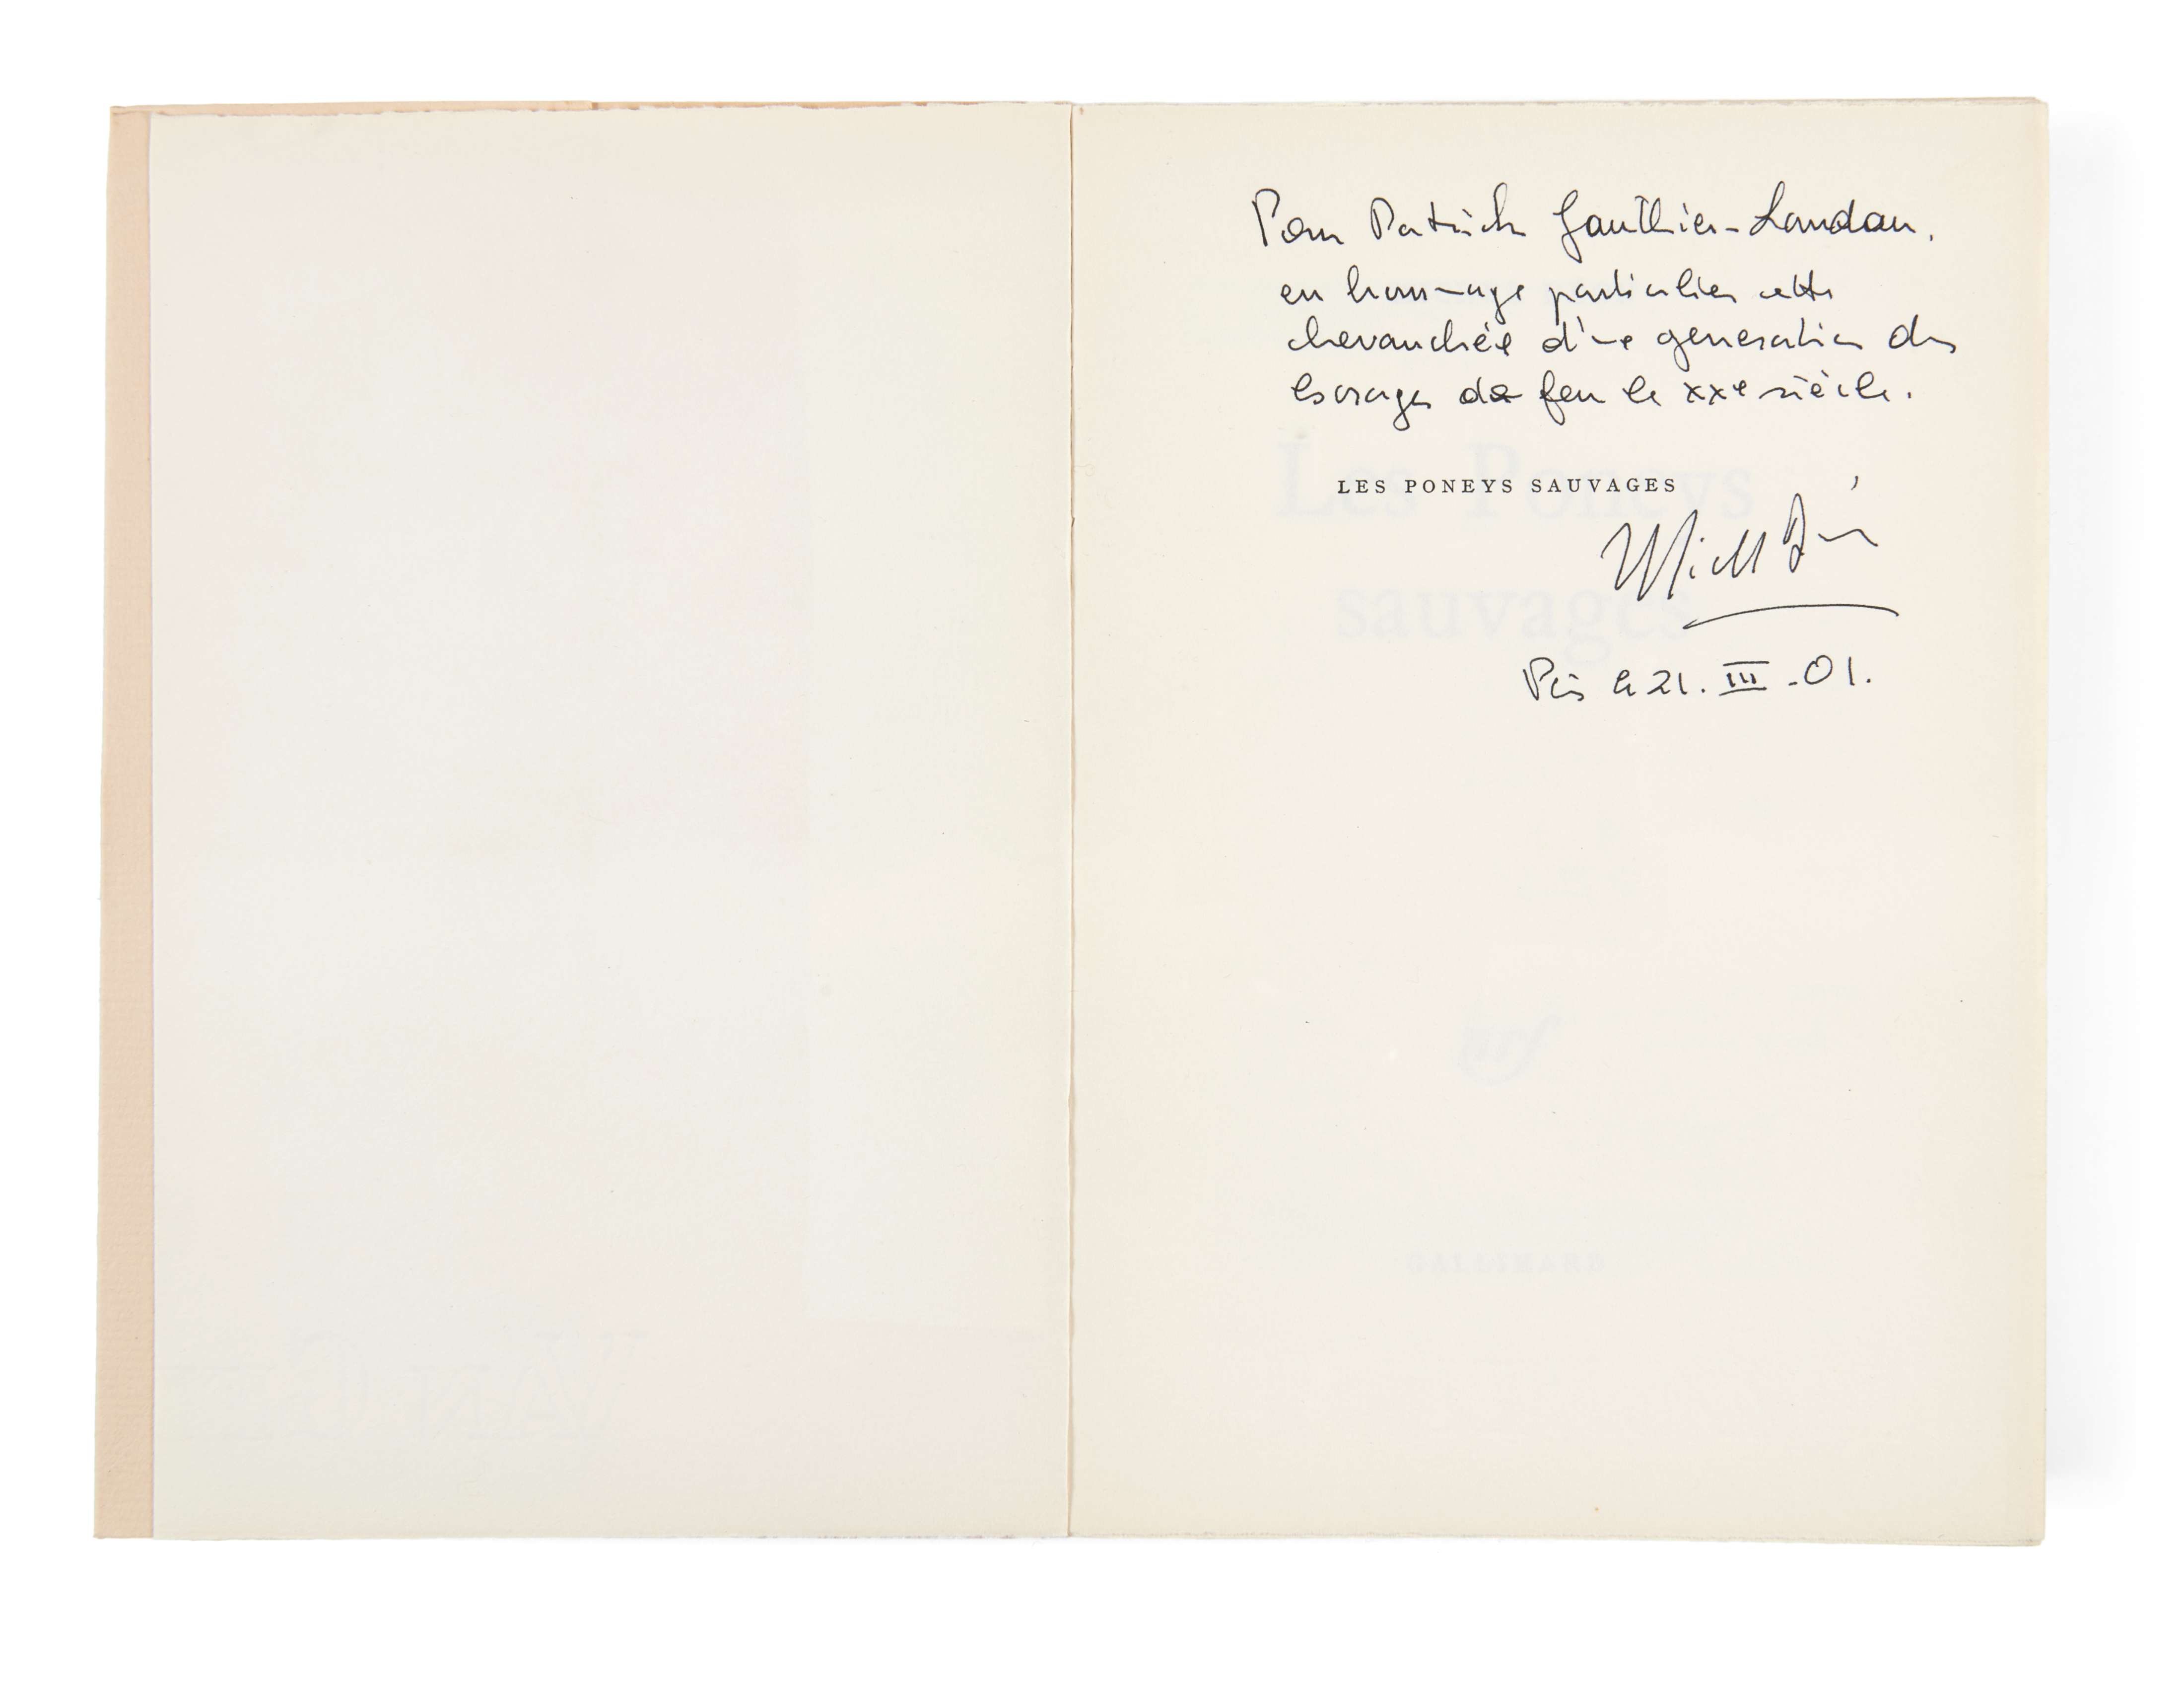 Pour Patrick Gauthier-Landau,
en hommage particulier cette
chevauchée d'une generation dans
les orages de feu le XXe siècle.
LES PONEYS SAUVAGES
Michel Déon
Paris le 21. III - 01.
Les Poneys
sauvages
nrf
GALLIMARD